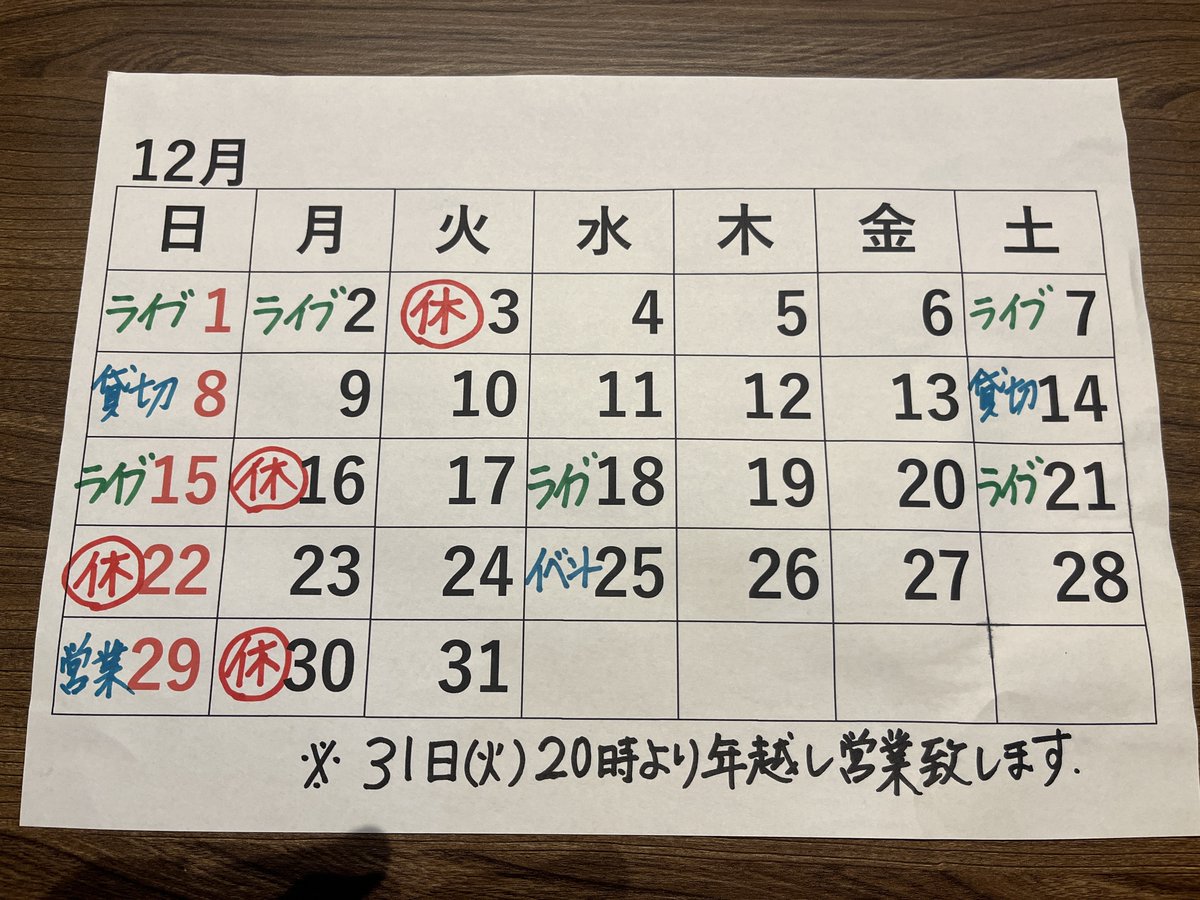 12月
日 月 火 水 木 金 土
ライブ 1 ライブ 2 休 3 4 5 6 ライブ 7
貸切 8 9 10 11 12 13 貸切 14
ライブ 15 休 16 17 ライブ 18 19 20 ライブ 21
休 22 23 24 イベント 25 26 27 28
営業 29 休 30 31
※ 31日(火)20時より年越し営業致します.